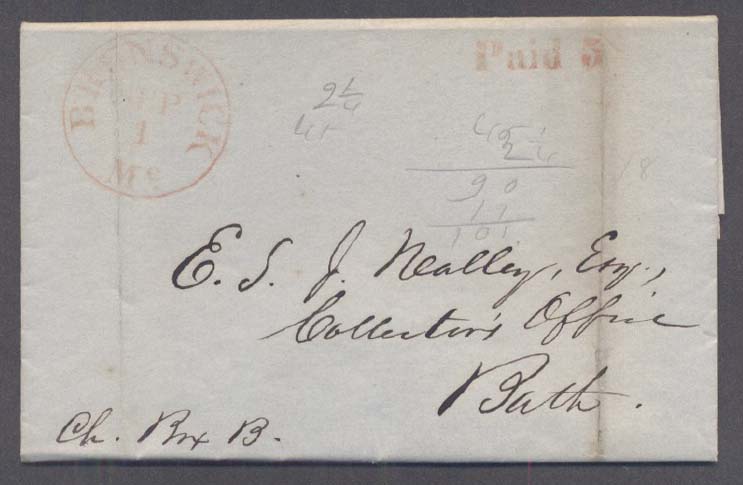 BRUNSWICK
SEP
1
Me
Paid 5
2 1/4
45
45
2 1/4
90
11
101
E. S. J. Nealley, Esq.,
Collector's Office
Bath.
Ch. Box B.